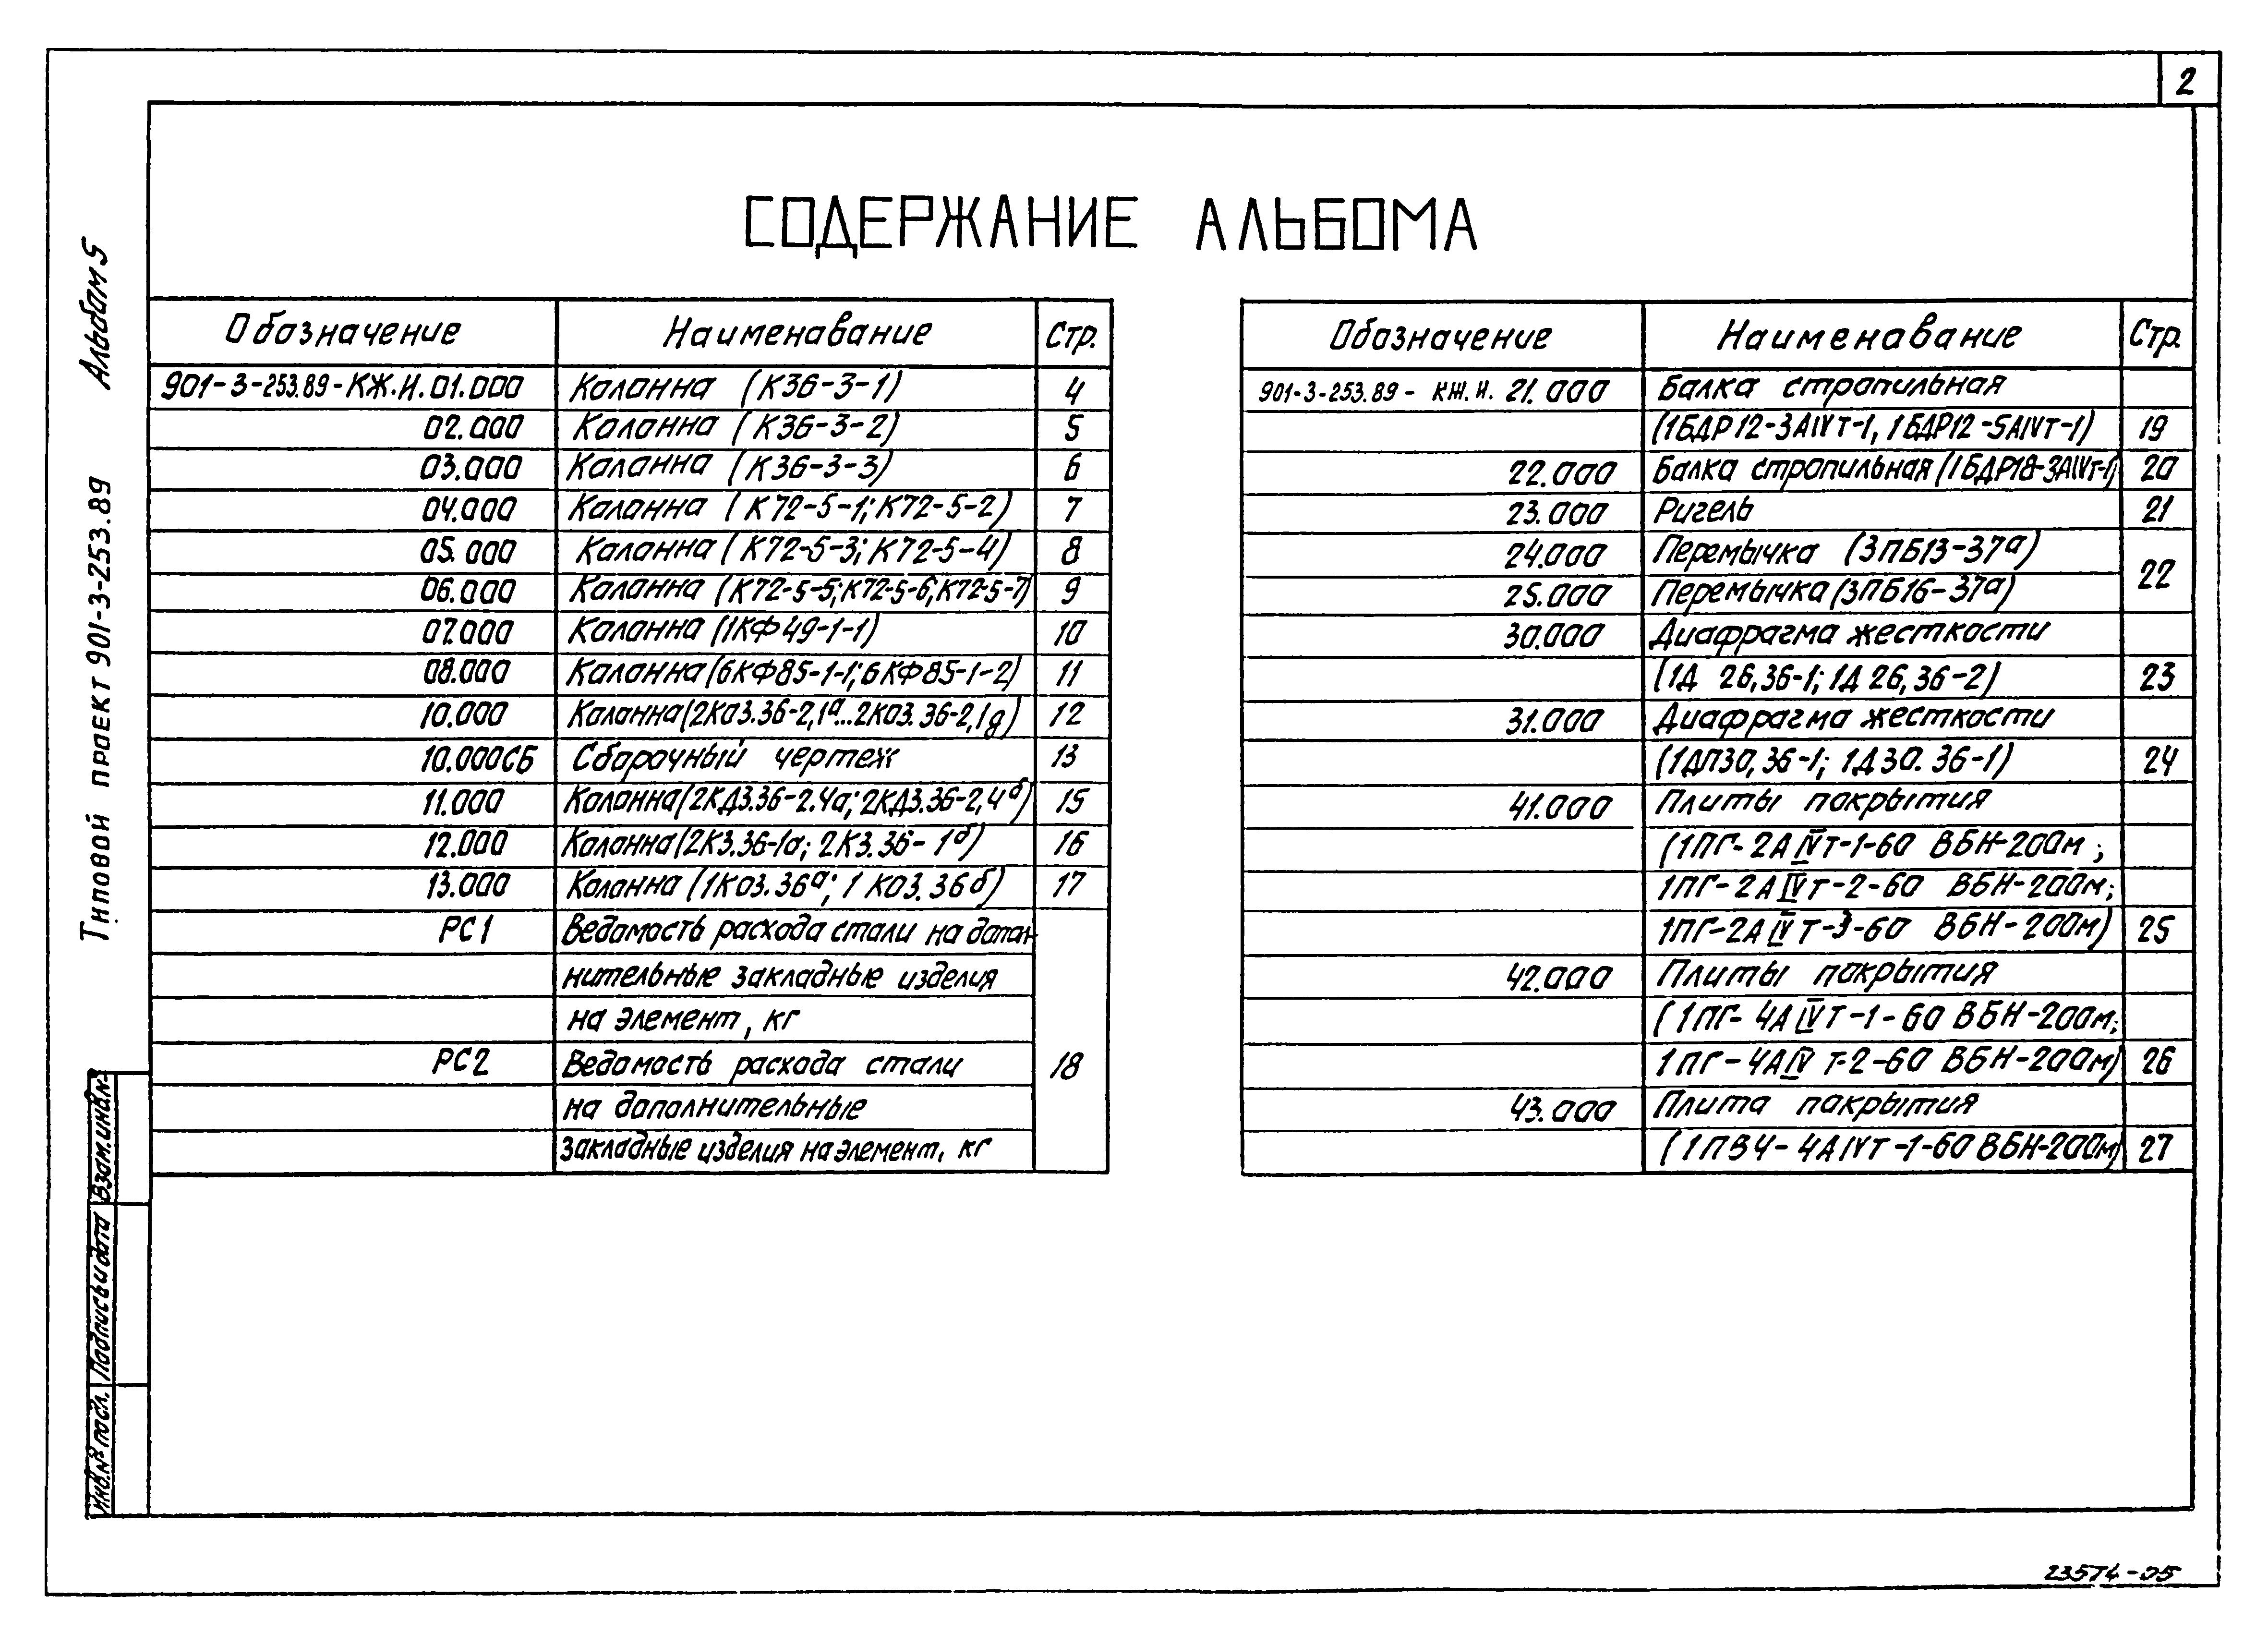 2
СОДЕРЖАНИЕ АЛЬБОМА
Альбом 5
Типовой проект 901-3-253.89
Обозначение Наименование Стр.
901-3-253.89-КЖ.И.01.000 Колонна (К36-3-1) 4
02.000 Колонна (К36-3-2) 5
03.000 Колонна (К36-3-3) 6
04.000 Колонна (К72-5-1; К72-5-2) 7
05.000 Колонна (К72-5-3; К72-5-4) 8
06.000 Колонна (К72-5-5; К72-5-6; К72-5-7) 9
07.000 Колонна (1КФ49-1-1) 10
08.000 Колонна (6КФ85-1-1; 6КФ85-1-2) 11
10.000 Колонна (2КО3.36-2,1а...2КО3.36-2,1д) 12
10.000СБ Сборочный чертеж 13
11.000 Колонна (2КД3.36-2.4а; 2КД3.36-2,4б) 15
12.000 Колонна (2К3.36-1а; 2К3.36-1б) 16
13.000 Колонна (1КО3.36а; 1КО3.36б) 17
РС1 Ведомость расхода стали на допол-
нительные закладные изделия
на элемент, кг
РС2 Ведомость расхода стали 18
на дополнительные
закладные изделия на элемент, кг
Обозначение Наименование Стр.
901-3-253.89-КЖ.И.21.000 Балка стропильная
(1БДР12-3АIVт-1, 1БДР12-5АIVт-1) 19
22.000 Балка стропильная (1БДР18-3АIVт-1) 20
23.000 Ригель 21
24.000 Перемычка (3ПБ13-37а)
22
25.000 Перемычка (3ПБ16-37а)
30.000 Диафрагма жесткости
(1Д 26,36-1; 1Д 26,36-2) 23
31.000 Диафрагма жесткости
(1ДП30,36-1; 1Д30.36-1) 24
41.000 Плиты покрытия
(1ПГ-2АIVт-1-60 ВБН-200м;
1ПГ-2АIVт-2-60 ВБН-200м;
1ПГ-2АIVт-3-60 ВБН-200м) 25
42.000 Плиты покрытия
(1ПГ-4АIVт-1-60 ВБН-200м;
1ПГ-4АIVт-2-60 ВБН-200м) 26
43.000 Плита покрытия
(1ПВ4-4АIVт-1-60 ВБН-200м) 27
Взам.инв.№
Подпись и дата
Инв.№ подл.
23574-05